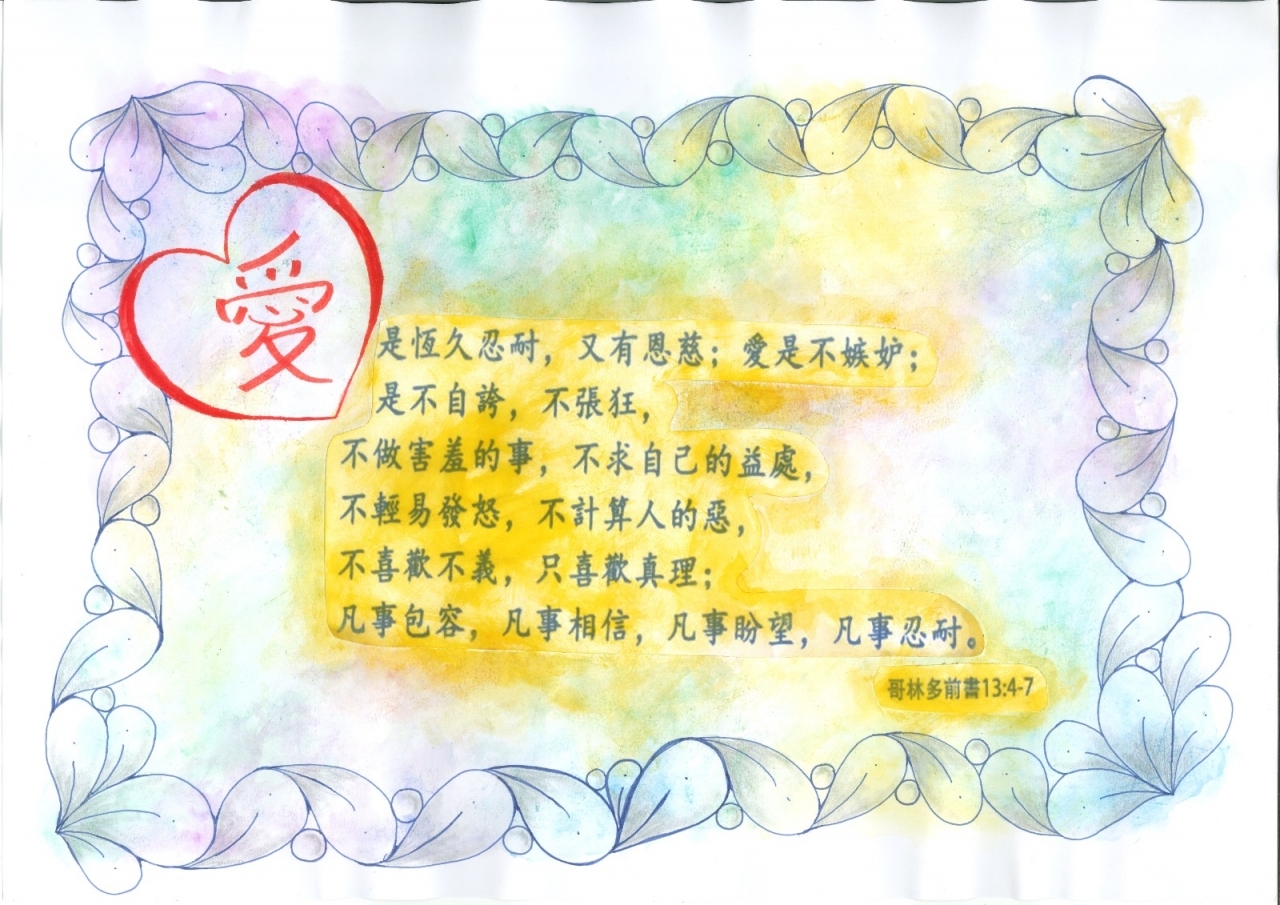 愛
是恆久忍耐，又有恩慈；愛是不嫉妒；
是不自誇，不張狂，
不做害羞的事，不求自己的益處，
不輕易發怒，不計算人的惡，
不喜歡不義，只喜歡真理；
凡事包容，凡事相信，凡事盼望，凡事忍耐。
哥林多前書13:4-7